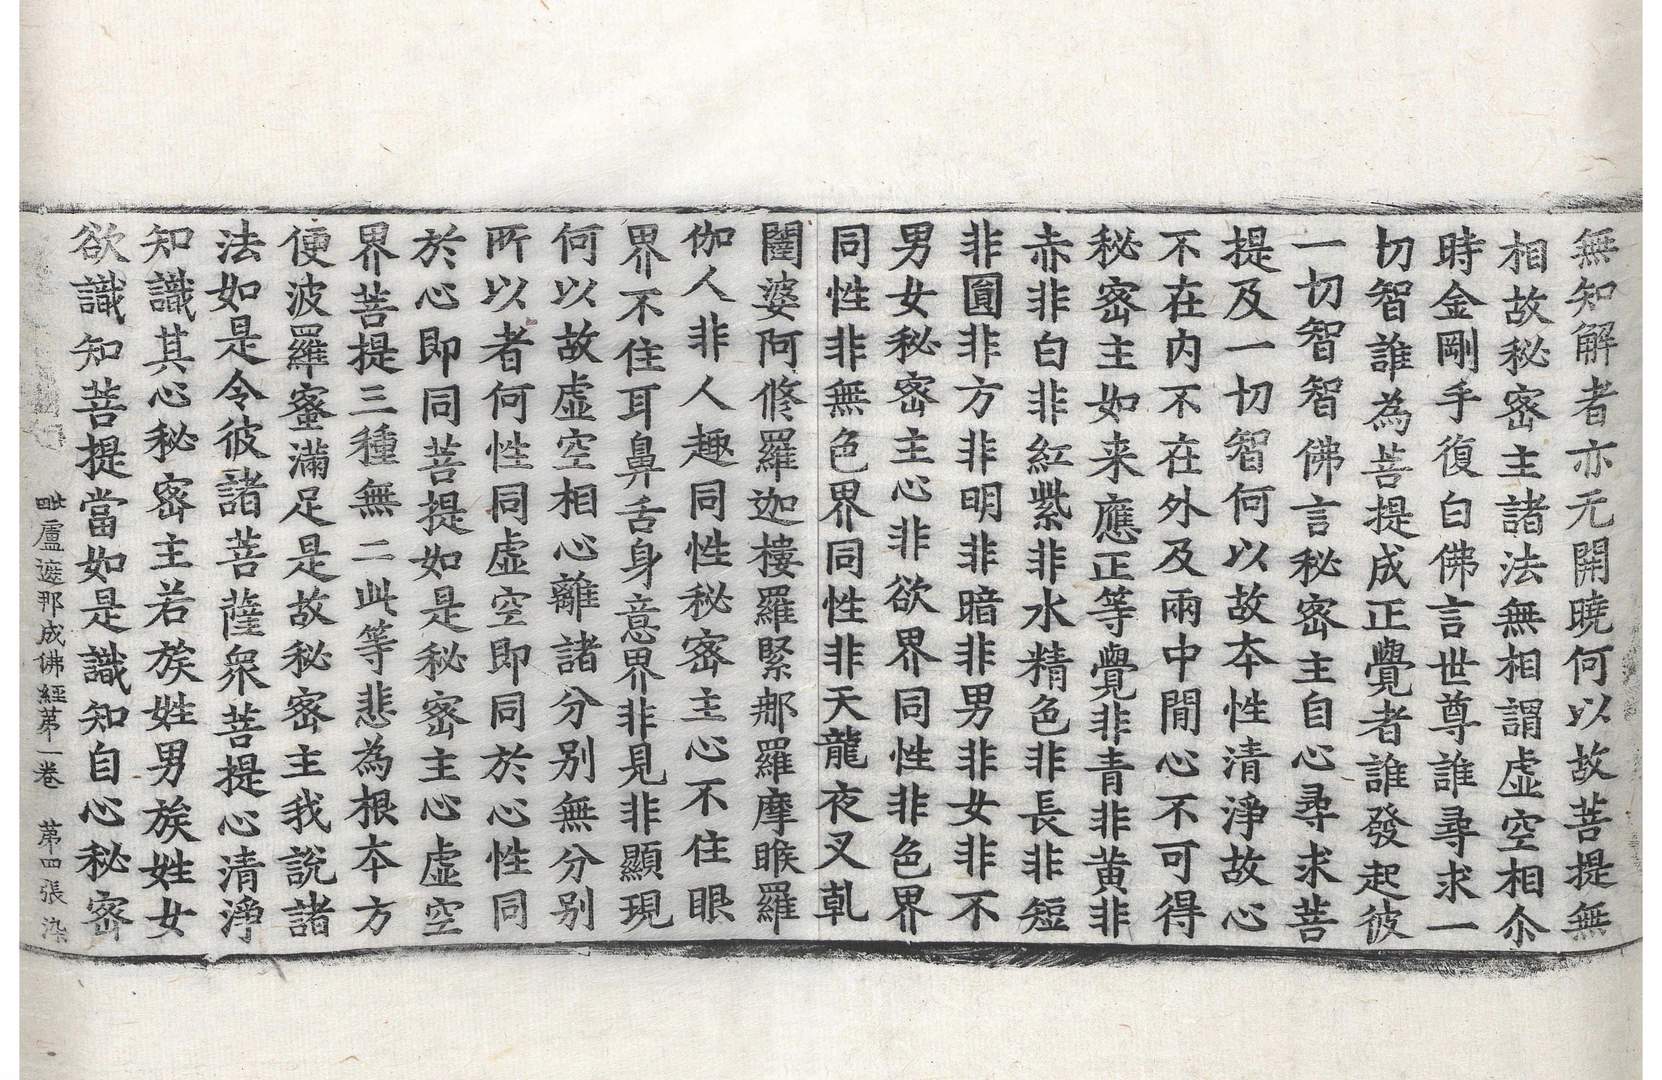 無知解者亦无開曉何以故菩提無
相故秘密主諸法無相謂虛空相尒
時金剛手復白佛言世尊誰尋求一
切智誰為菩提成正覺者誰發起彼
一切智智佛言秘密主自心尋求菩
提及一切智何以故夲性清淨故心
不在内不在外及兩中閒心不可得
秘密主如来應正等覺非青非黄非
赤非白非紅紫非水精色非長非短
非圓非方非明非暗非男非女非不
男女秘密主心非欲界同性非色界
同性非無色界同性非天龍夜叉乹
闥婆阿修羅迦樓羅緊那羅摩睺羅
伽人非人趣同性秘密主心不住眼
界不住耳鼻舌身意界非見非顯現
何以故虛空相心離諸分别無分别
所以者何性同虛空即同於心性同
於心即同菩提如是秘密主心虛空
界菩提三種無二此等悲為根夲方
便波羅蜜滿足是故秘密主我說諸
法如是令彼諸菩薩衆菩提心清淨
知識其心秘密主若族姓男族姓女
欲識知菩提當如是識知自心秘密
毗盧遮那成佛經苐一卷 苐四張 染